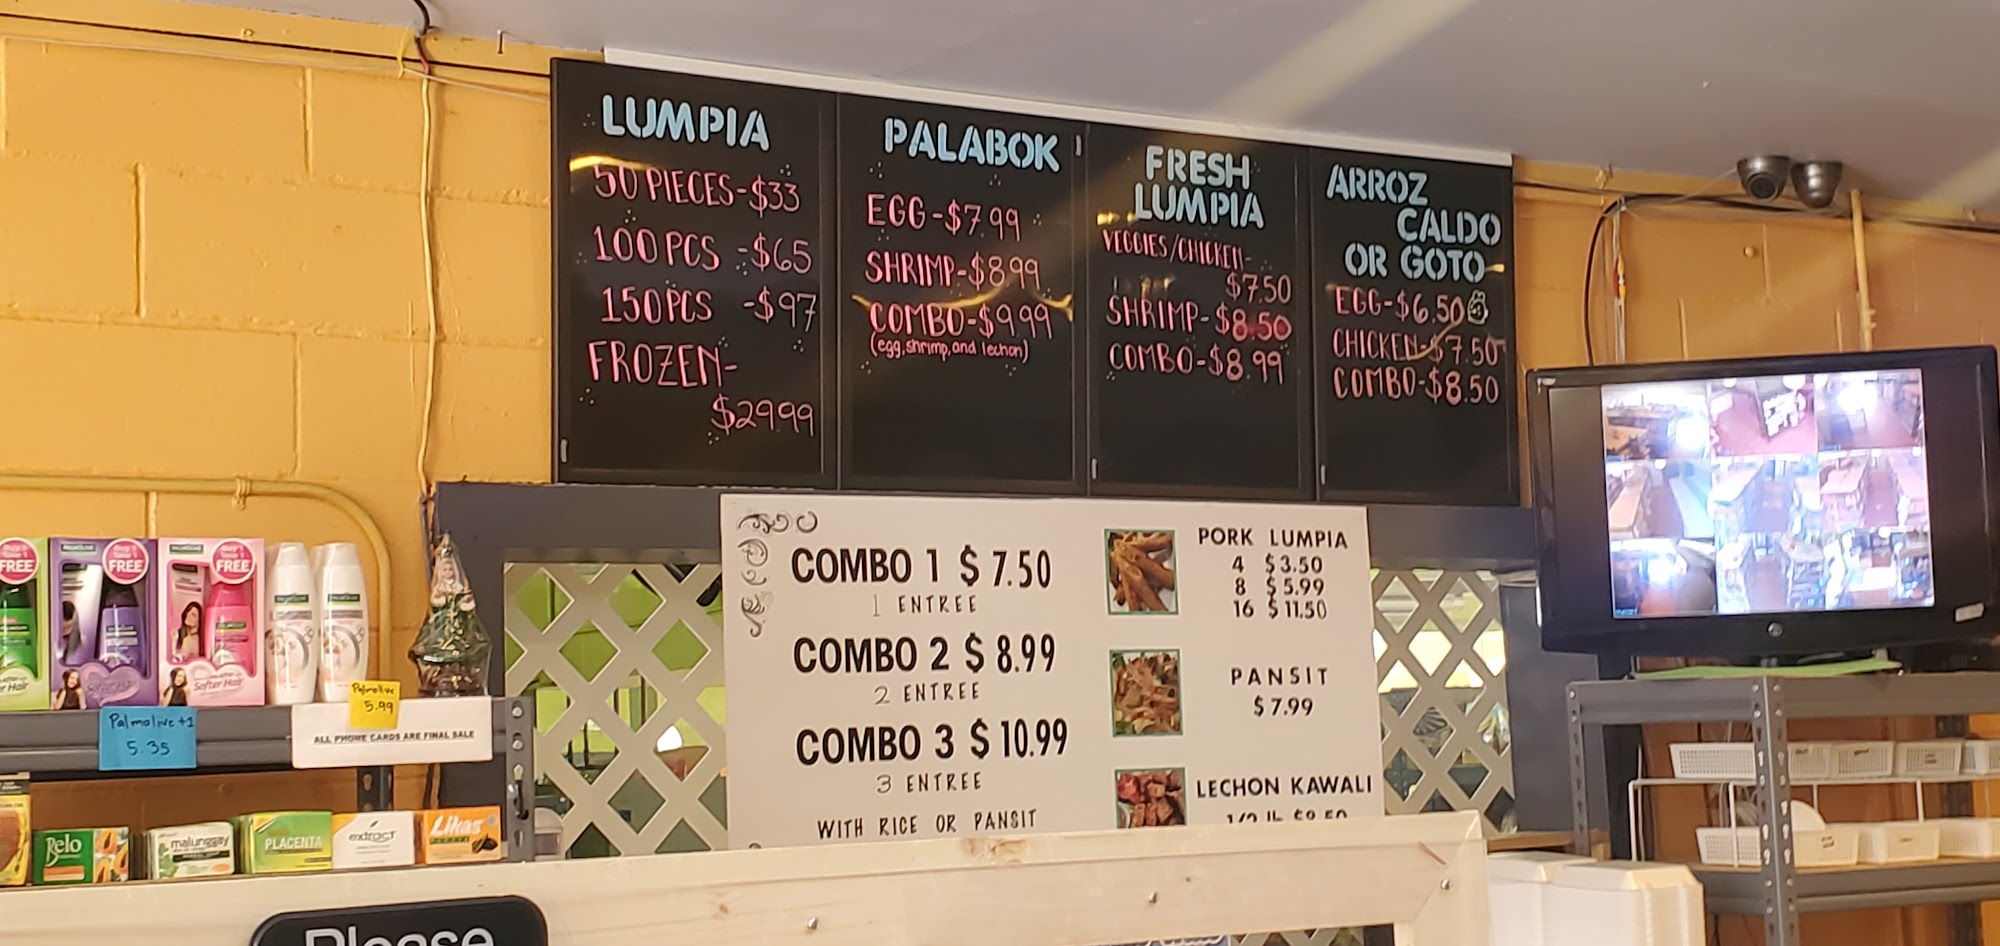 LUMPIA
50 PIECES-$33
100PCS -$65
150PCS -$97
FROZEN-
$29.99
PALABOK
EGG-$7.99
SHRIMP-$8.99
COMBO-$9.99
(egg, shrimp, and lechon)
FRESH
LUMPIA
VEGGIES/CHICKEN-
$7.50
SHRIMP-$8.50
COMBO-$8.99
ARROZ
CALDO
OR GOTO
EGG-$6.50
CHICKEN-$7.50
COMBO-$8.50
COMBO 1 $ 7.50
1 ENTREE
COMBO 2 $ 8.99
2 ENTREE
COMBO 3 $ 10.99
3 ENTREE
WITH RICE OR PANSIT
PORK LUMPIA
4 $ 3.50
8 $ 5.99
16 $ 11.50
PANSIT
$ 7.99
LECHON KAWALI
1/2 lb
FREE
FREE
FREE
Softer Hair
Palmolive +1
5.35
Palmolive
5.99
ALL PHONE CARDS ARE FINAL SALE
Belo
malunggay
PLACENTA
extract
Likas
Please